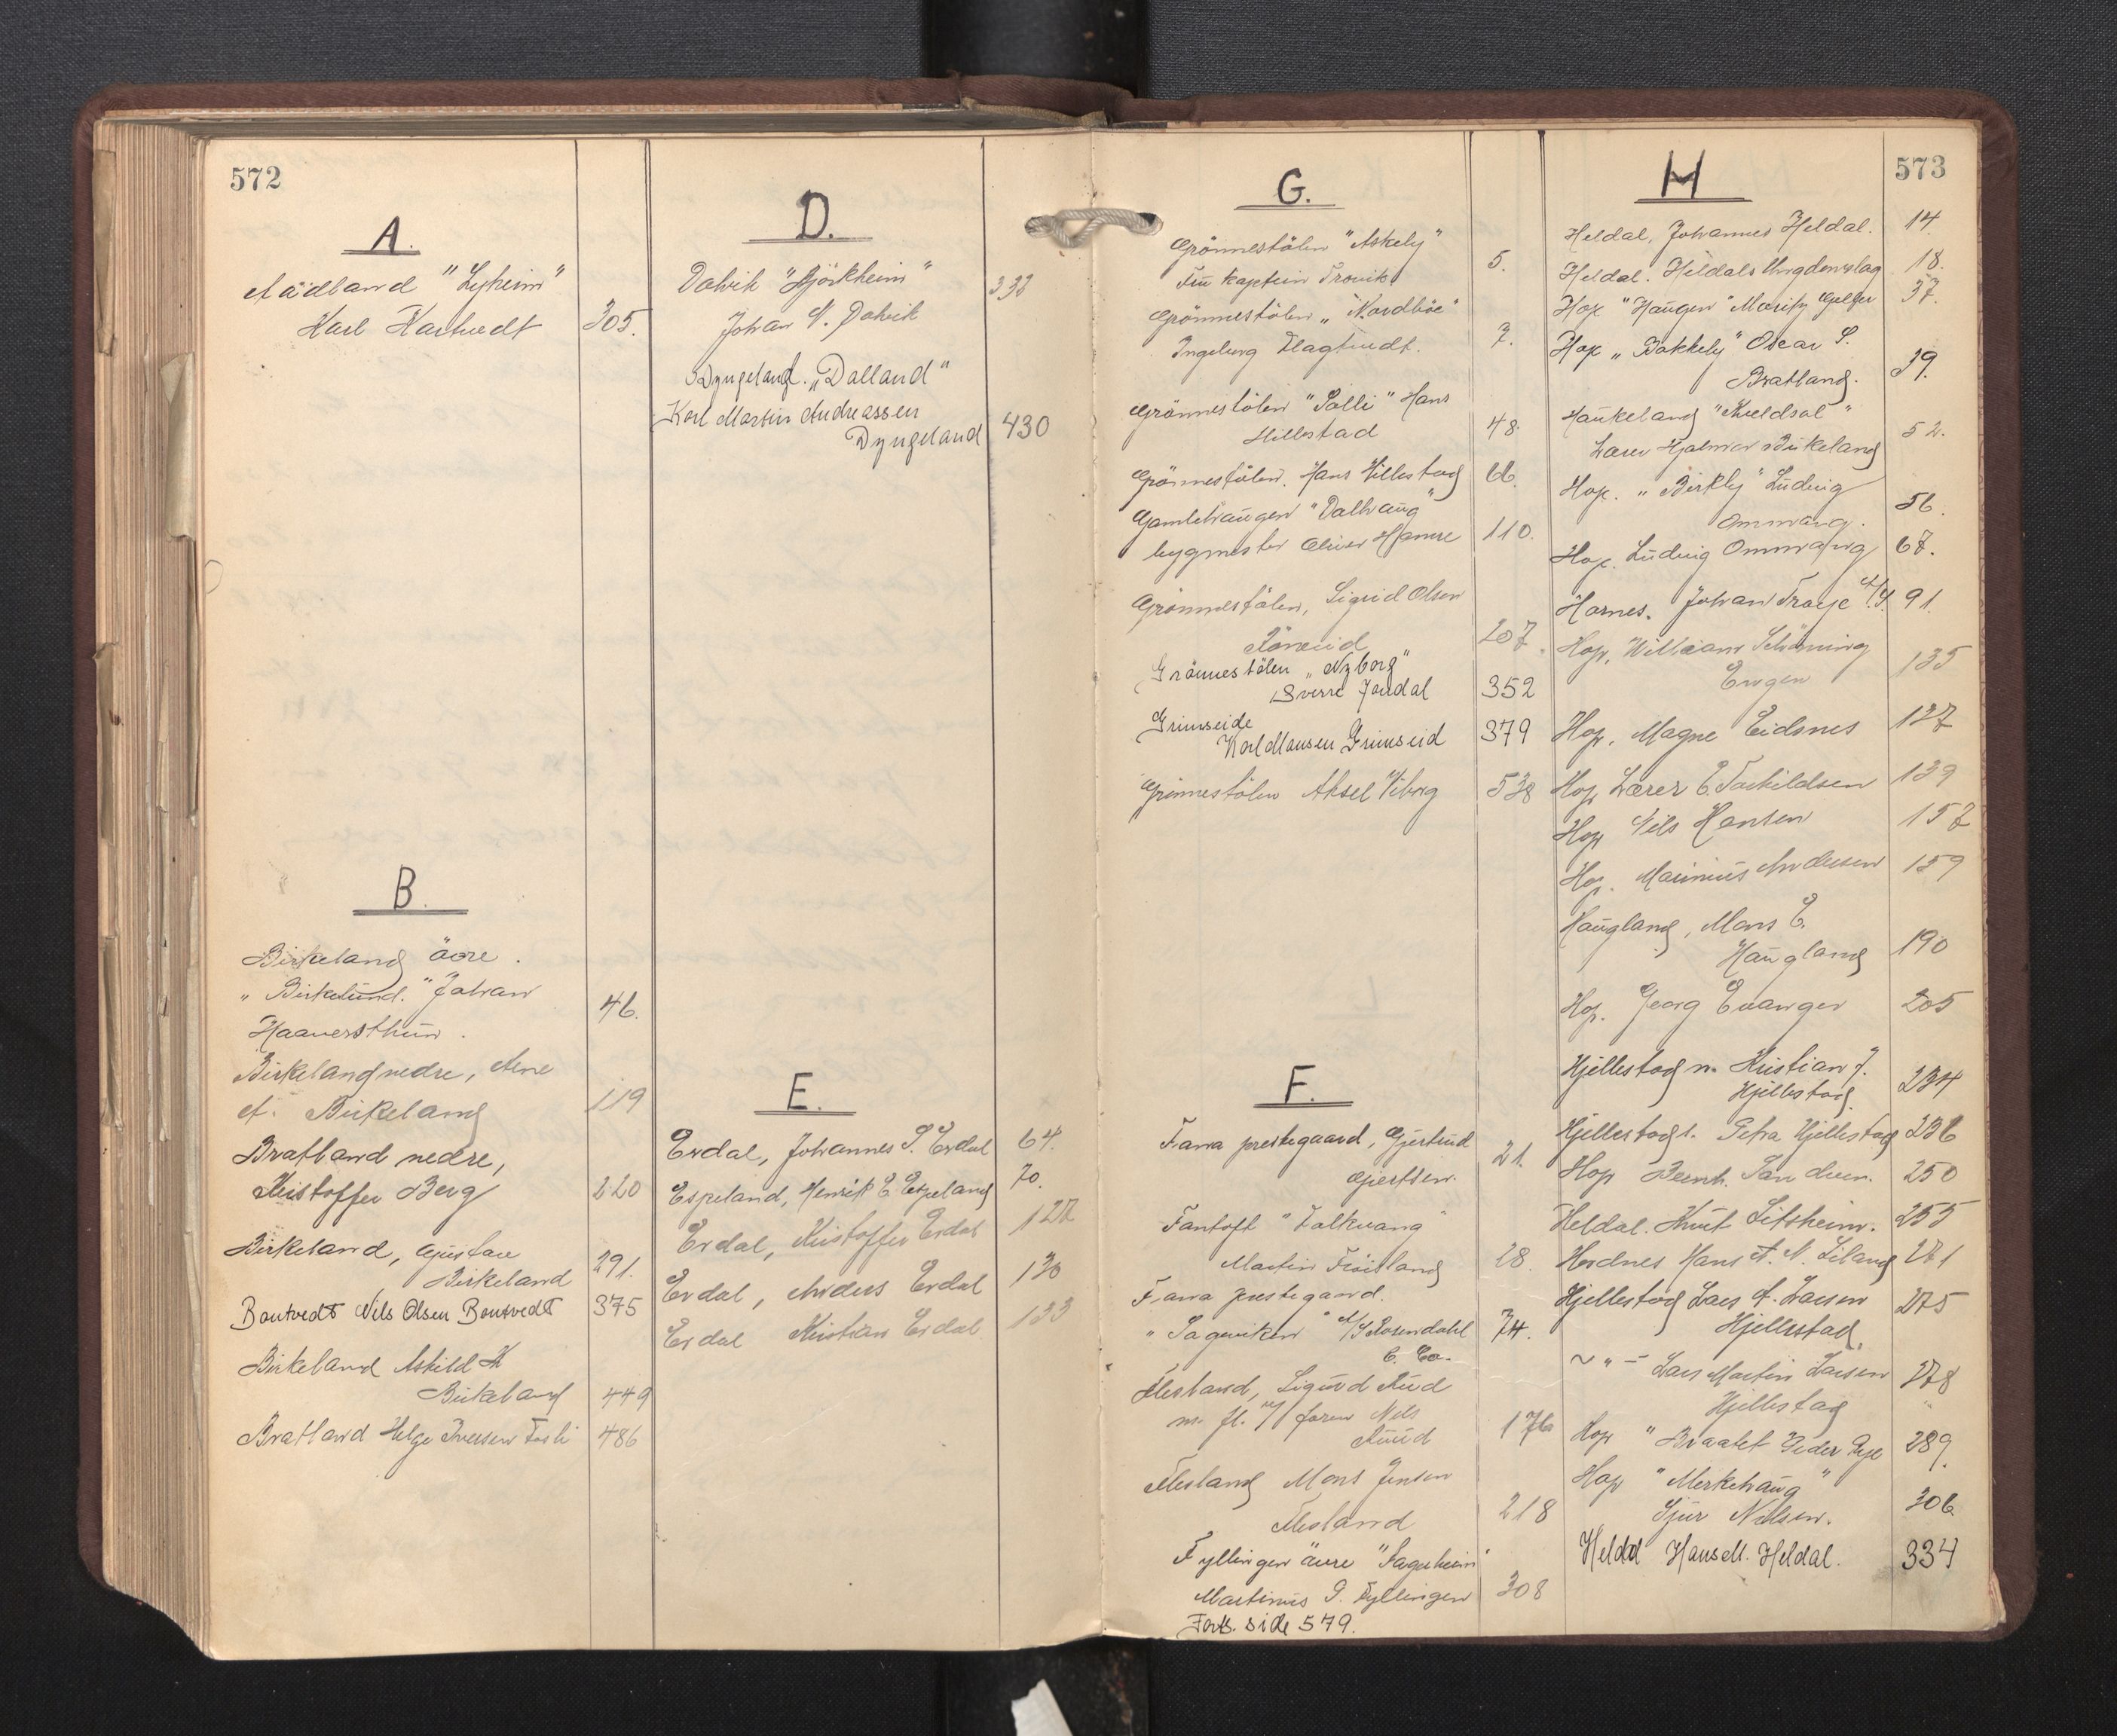 572
A.
Aadland "Lyheim"
Karl Kartvedt 305.
B.
Birkeland övre.
"Birkelund." Johan 46.
Haaversthun.
Birkeland nedre, Arne
A. Birkeland 119
Bratland nedre,
Kristoffer Berg 220
Birkeland, Gustav
Birkeland 291.
Bontvedt Nels Olsen Bontvedt 375
Birkeland Askild K
Birkeland 449
Bratland Helge Iversen 486
D.
Dalvik "Björkheim" 332
Johan N. Dalvik
Dyngeland. "Dalland"
Karl Martin Andreassen
Dyngeland 430
E.
Erdal, Johannes S. Erdal 64.
Espeland, Henrik E. Espeland 70.
Erdal, Kristoffer Erdal 122
Erdal, Anders Erdal 130
Erdal Kristian Erdal 133
573
G.
Grönnestölen "Askely" 5.
Fru kaptein
Grönnestölen "Nordböe"
Ingeborg Flagtvedt. 7.
Grönnestölen "Solli" Hans
Hillestad 48
Grönnestölen. Hans Hillestad 66.
Gamlehaugen "Dalhaug"
bygmester Oliver Hamre 110.
Grönnestölen, Sigrid Olsen
207.
Grönnestölen "Nyborg"
Sverre Jondal 352
Grimseide
Karl Mansen Grimseid 379
Grönnestölen Aksel Viborg 538
F.
Fana prestegaard, Gjertrud
Gjertsen. 21.
Fantoft "Falkvang"
Martin Fröisland 28.
Fana prestegaard.
"Sagviken" A/S Rosendahl 74.
& Co.
Flesland, Sigurd Ruud
m. fl. v/ faren Nels
Ruud 176
Flesland Mons Jensen
Flesland 218
Fyllingen övre "Fagerheim"
Martinus G. Fyllingen 308
Forts. side 579.
H
Heldal, Johannes Heldal. 14.
Heldal. Heldals Ungdomslag 18.
Hop "Haugen" Moritz 37.
Hop "Bakkely" Oscar S.
Bratland. 39.
Haukeland "Kveldsol"
Lærer Hjalmar Birkeland 52.
Hop. "Birkly" Ludvig
Ommvang. 56.
Hop. Ludvig Ommvang 67.
Hornes. Johan Troye A/S. 91.
Hop, William Schönning
Engen 135
Hop, Magne Eidsnes 137
Hop, Lærer E. Torkildsen 139
Hop Nils Hansen 157
Hop. Marinius Andersen 159
Haugland, Mons E.
Haugland 190
Hop. Georg Evanger 205
Hjellestad n. Kristian J.
Hjellestad. 234
Hjellestad s. Petra Hjellestad 236
Hop Bernh. Sandven. 250
Heldal. Knut Litsheim. 255
Hordnes Hans A. N. Liland 271
Hjellestad Lars A. Larsen
Hjellestad. 275
~ " - Lars Martin Larsen
Hjellestad 278
Hop "Braatet Peder Rye 289.
Hop "Merkehaug"
Sjur Nilsen. 306.
Heldal Hans M. Heldal. 334